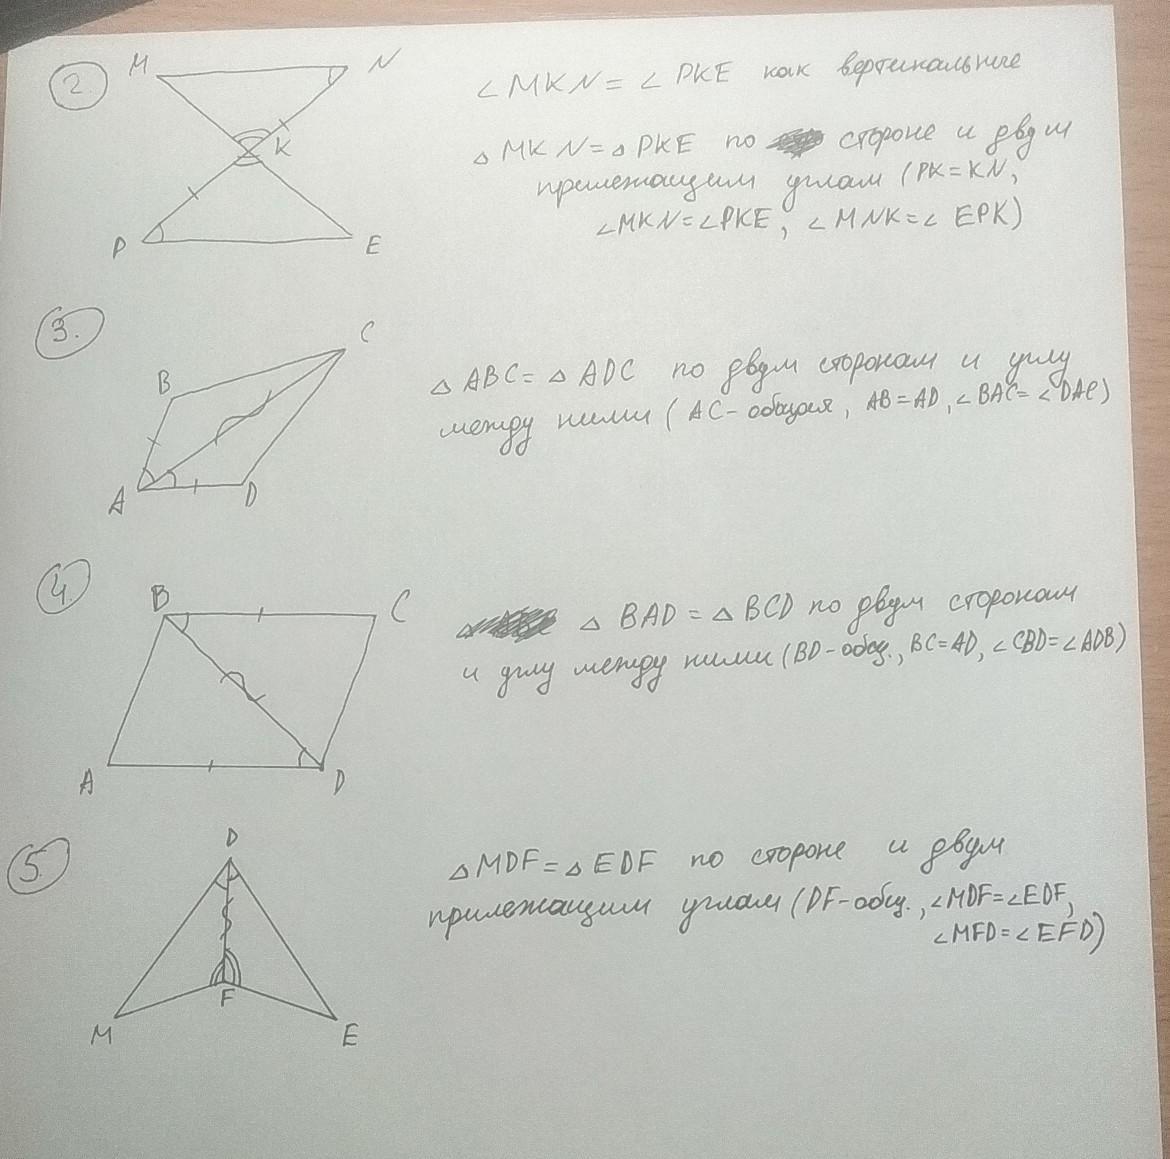 2.
M N
K
P E
∠MKN = ∠PKE как вертикальные
△MKN = △PKE по стороне и двум
прилежащим углам (PK = KN,
∠MKN = ∠PKE, ∠MNK = ∠EPK)
3.
C
B
A D
△ABC = △ADC по двум сторонам и углу
между ними (AC - общая, AB = AD, ∠BAC = ∠DAC)
4.
B C
A D
△BAD = △BCD по двум сторонам
и углу между ними (BD - общ., BC = AD, ∠CBD = ∠ADB)
5.
D
F
M E
△MDF = △EDF по стороне и двум
прилежащим углам (DF - общ., ∠MDF = ∠EDF,
∠MFD = ∠EFD)